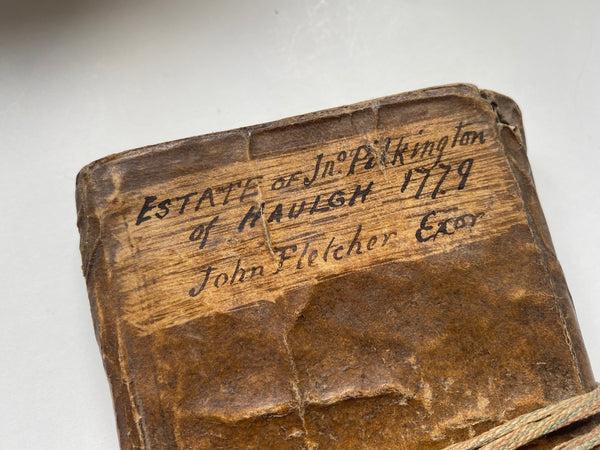 ESTATE OF Jnº Pilkington
of HAULGH 1779
John Fletcher Exor